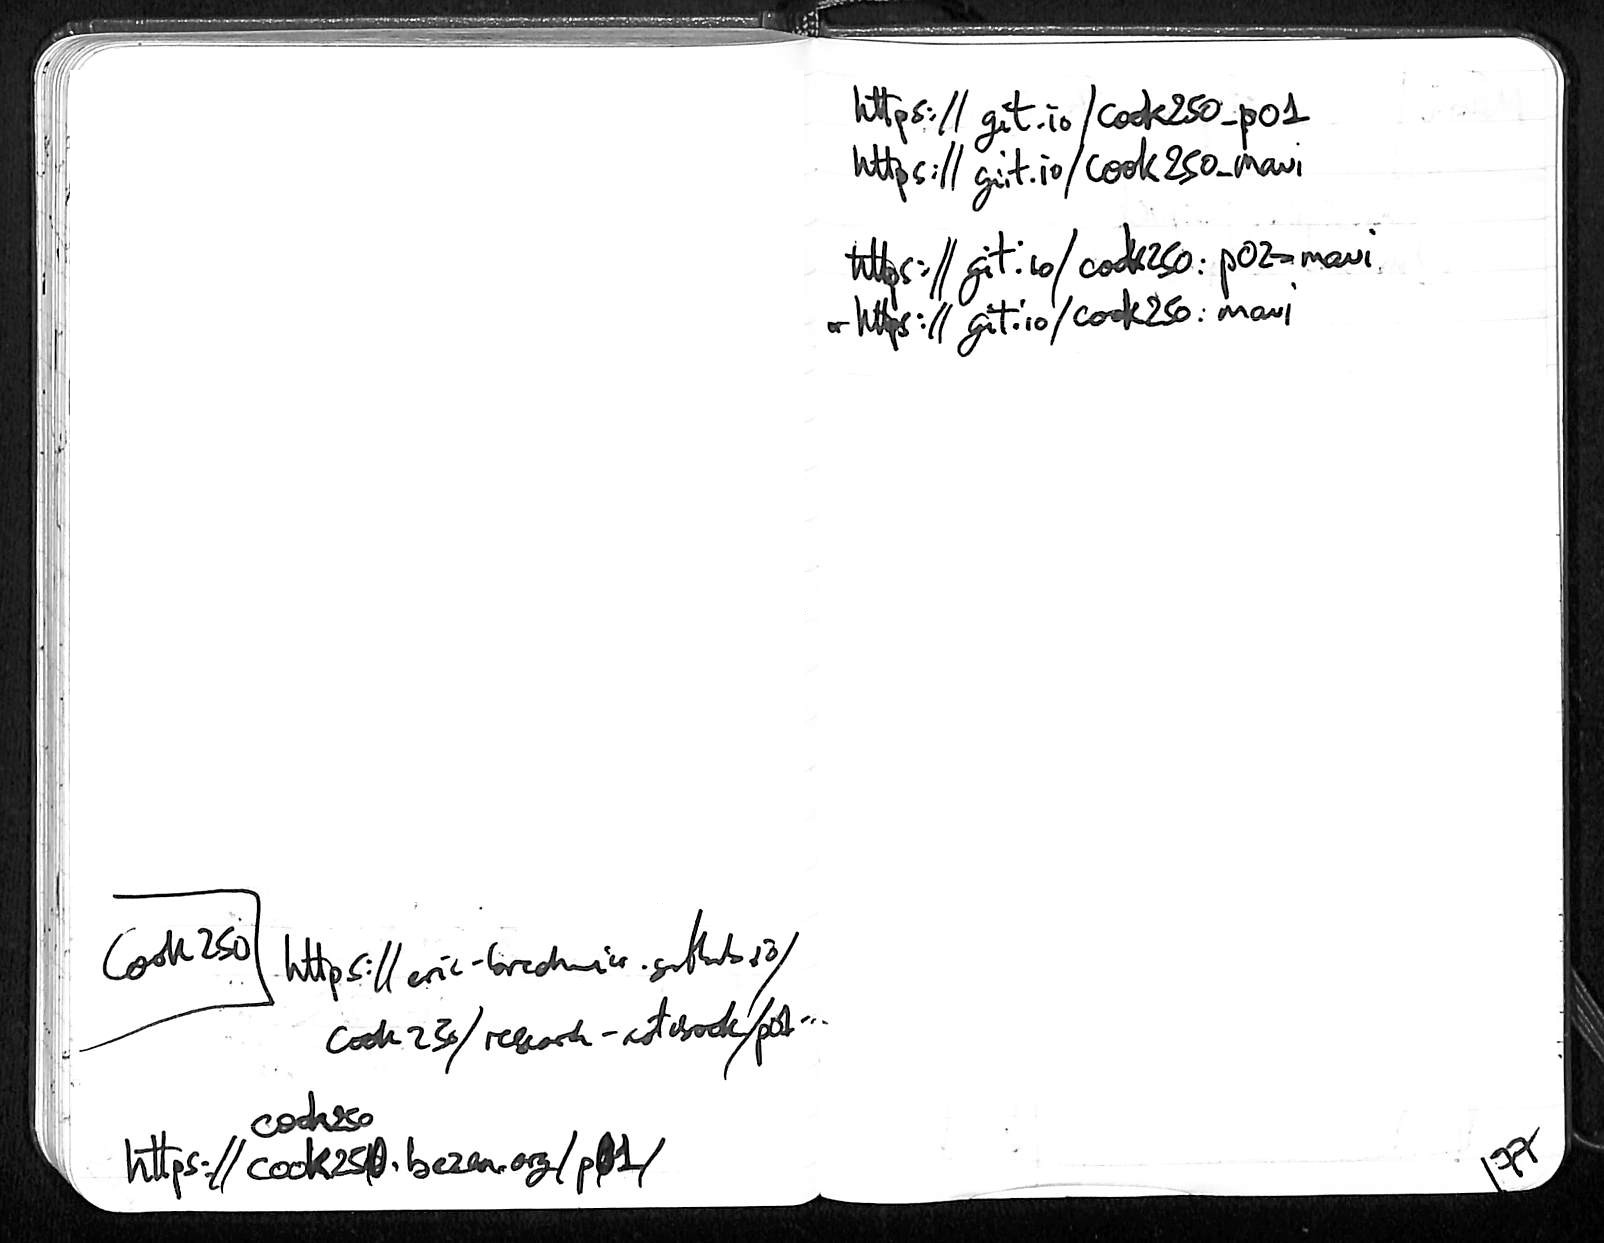 Cook250
https://eric-brechemier.github.io/
cook250/research-notebook/p01...
cook250
https://cook250.bezen.org/p01/
https://git.io/cook250_p01
https://git.io/cook250_mawi
https://git.io/cook250:p02-mawi
or https://git.io/cook250:mawi
177